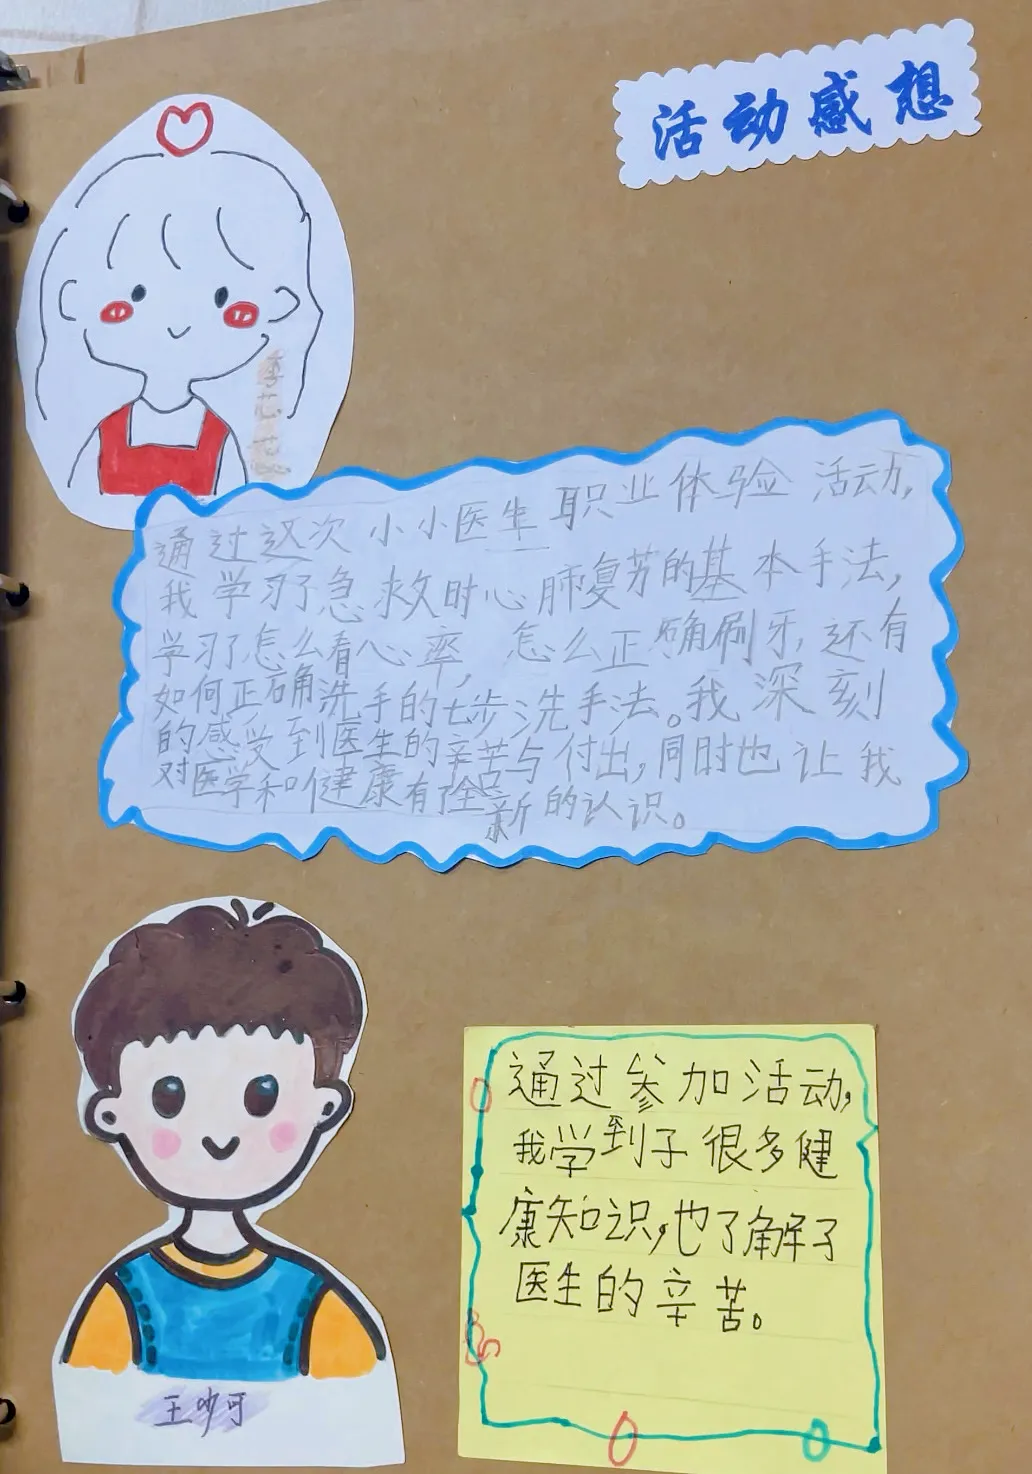 活动感想
通过这次小小医生职业体验活动，
我学习了急救时心肺复苏的基本手法，
学习了怎么看心率，怎么正确刷牙，还有
如何正确洗手的七步洗手法。我深刻
的感受到医生的辛苦与付出，同时也让我
对医学和健康有了全
新的认识。
通过参加活动，
我学到了很多健
康知识，也了解了
医生的辛苦。
王
可